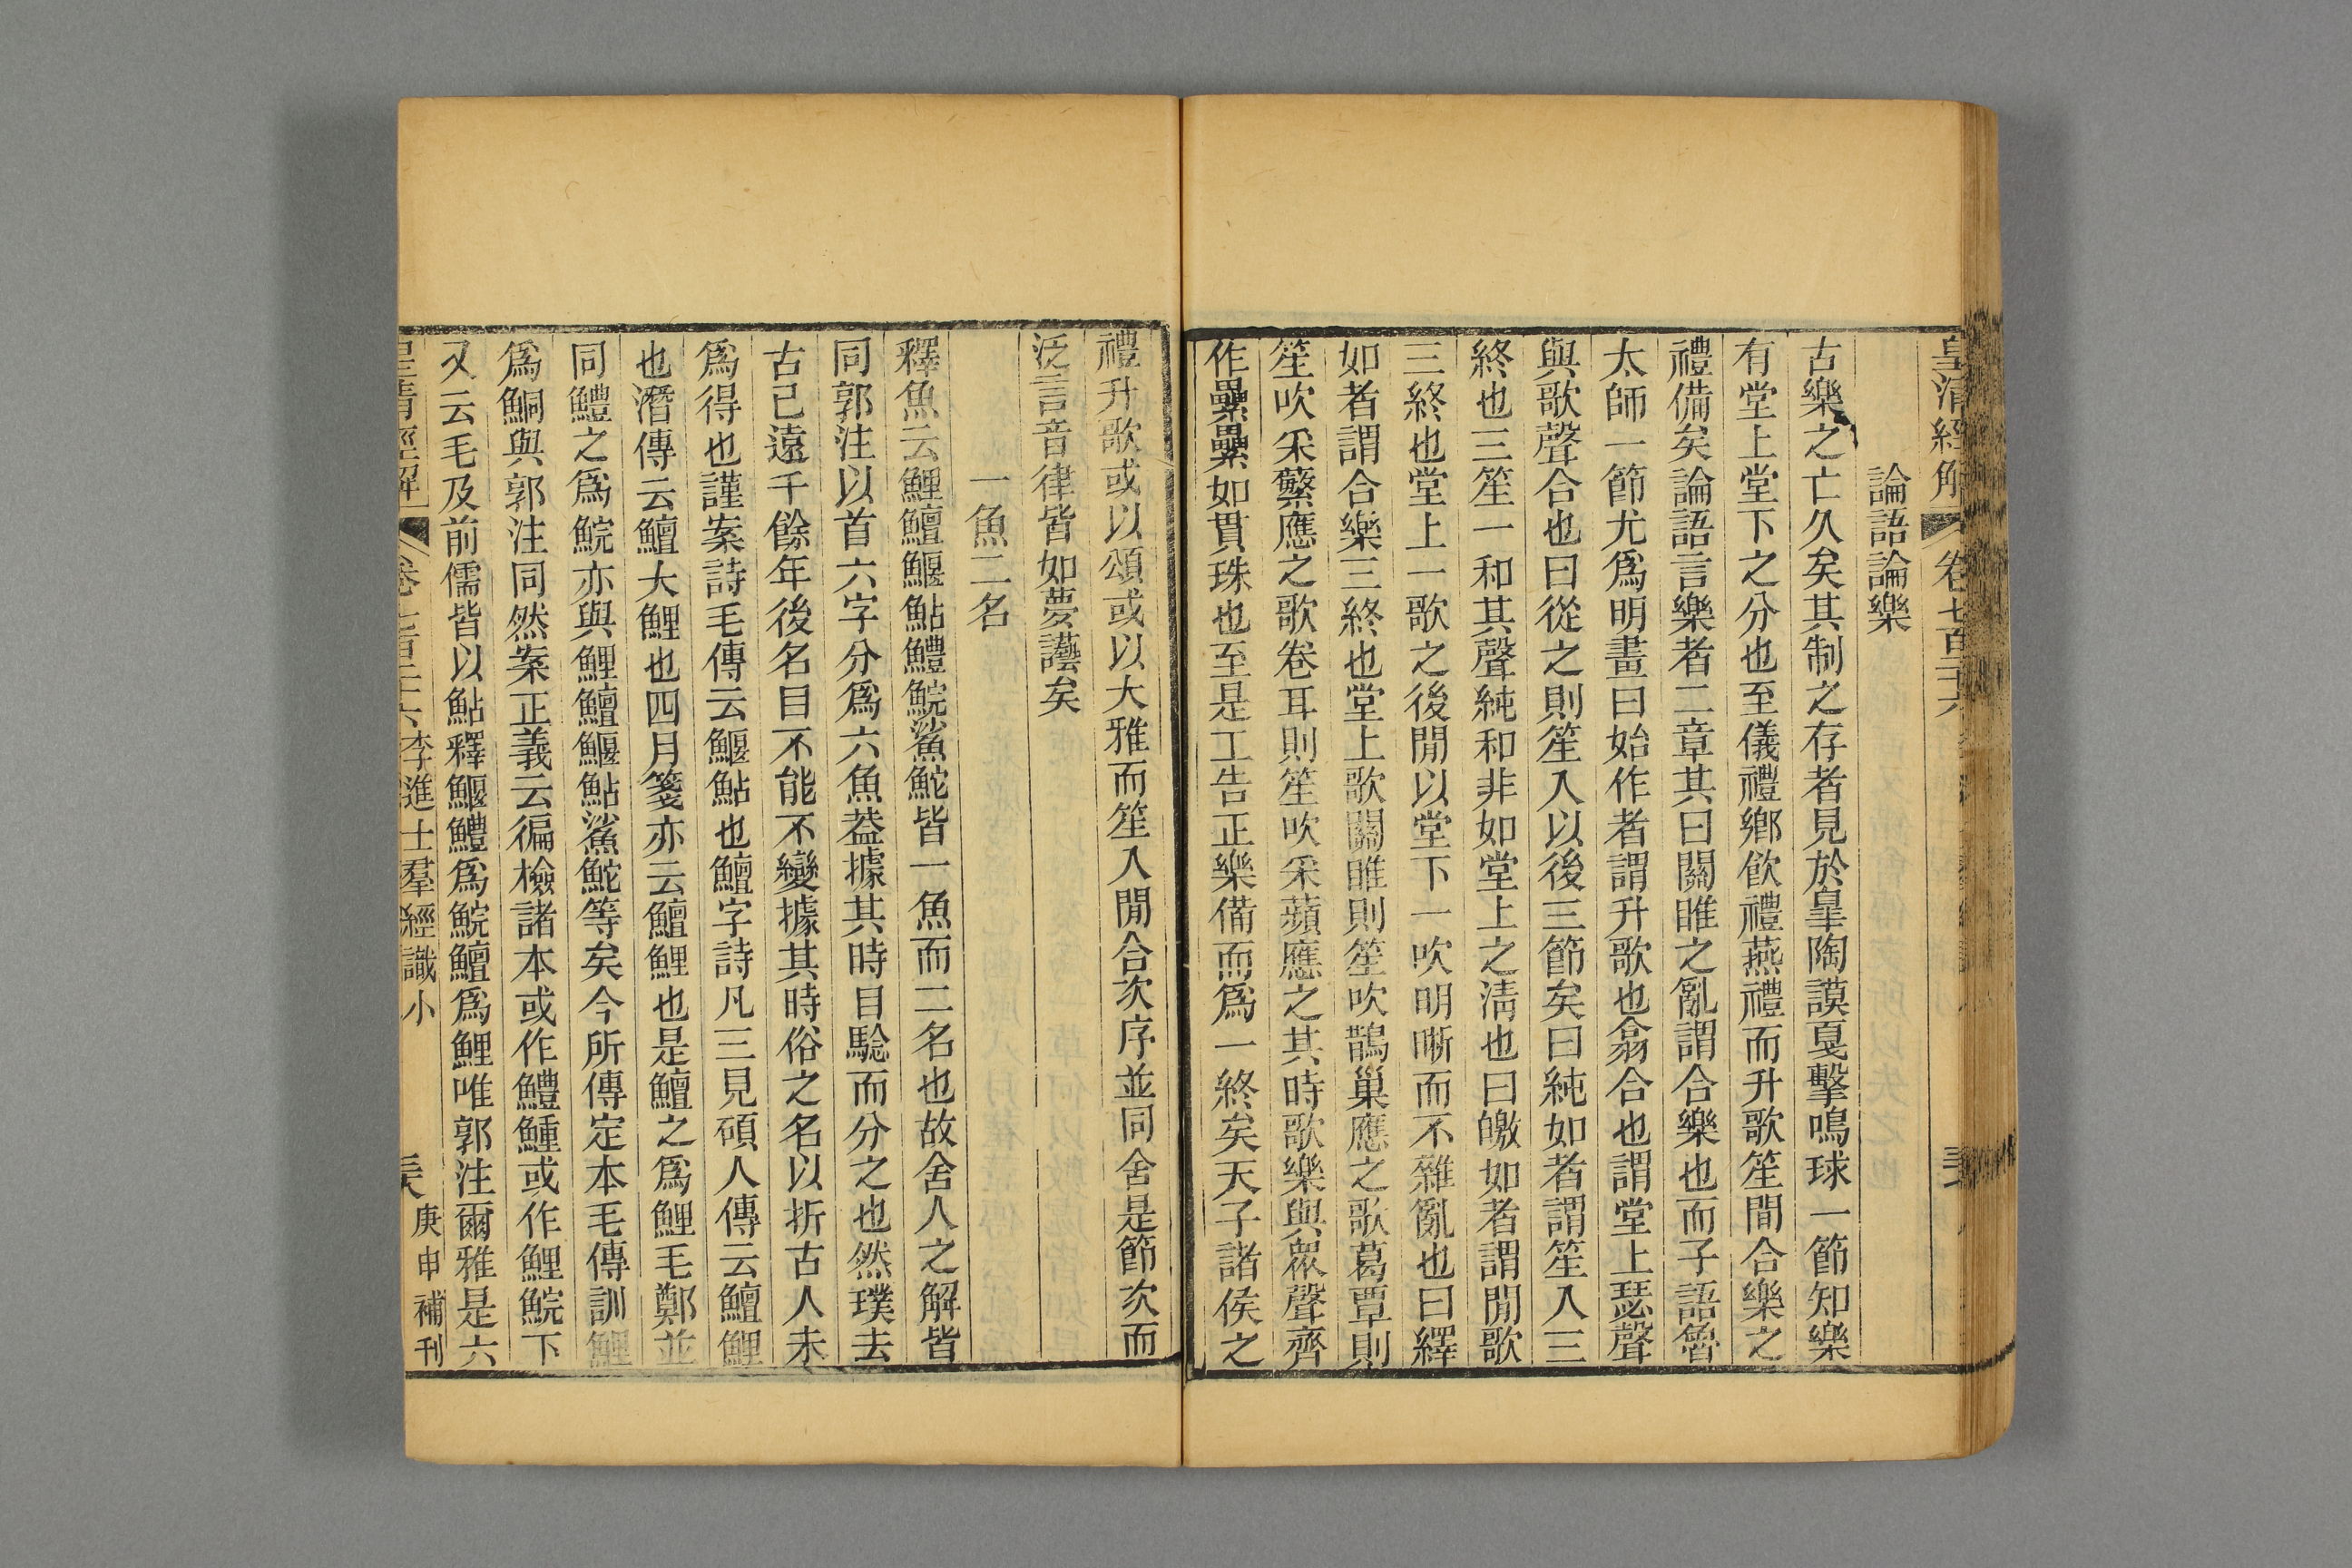 皇清經解 卷七百二十六
論語論樂
古樂之亡久矣其制之存者見於皐陶謨戛擊鳴球一節知樂
有堂上堂下之分也至儀禮鄉飲禮燕禮而升歌笙間合樂之
禮備矣論語言樂者二章其曰關雎之亂謂合樂也而子語魯
太師一節尤爲明畫曰始作者謂升歌也翕合也謂堂上瑟聲
與歌聲合也曰從之則笙入以後三節矣曰純如者謂笙入三
終也三笙一和其聲純和非如堂上之淸也曰皦如者謂閒歌
三終也堂上一歌之後閒以堂下一吹明晰而不雜亂也曰繹
如者謂合樂三終也堂上歌關雎則笙吹鵲巢應之歌葛覃則
笙吹采蘩應之歌卷耳則笙吹采蘋應之其時歌樂與眾聲齊
作纍纍如貫珠也至是工告正樂備而爲一終矣天子諸侯之
禮升歌或以頌或以大雅而笙入閒合次序並同舍是節次而
泛言音律皆如夢讛矣
一魚二名
釋魚云鯉鱣鰋鮎鱧鯇鯊鮀皆一魚而二名也故舍人之解皆
同郭注以首六字分爲六魚葢據其時目驗而分之也然璞去
古已遠千餘年後名目不能不變據其時俗之名以折古人未
爲得也謹案詩毛傳云鰋鮎也鱣字詩凡三見碩人傳云鱣鯉
也潛傳云鱣大鯉也四月箋亦云鱣鯉也是鱣之爲鯉毛鄭並
同鱧之爲鯇亦與鯉鱣鰋鮎鯊鮀等矣今所傳定本毛傳訓鯉
爲鮦與郭注同然案正義云徧檢諸本或作鱧鯶或作鯉鯇下
又云毛及前儒皆以鮎釋鰋鱧爲鯇鱣爲鯉唯郭注爾雅是六
皇清經解 卷七百二十六 李進士羣經識小 庚申補刊